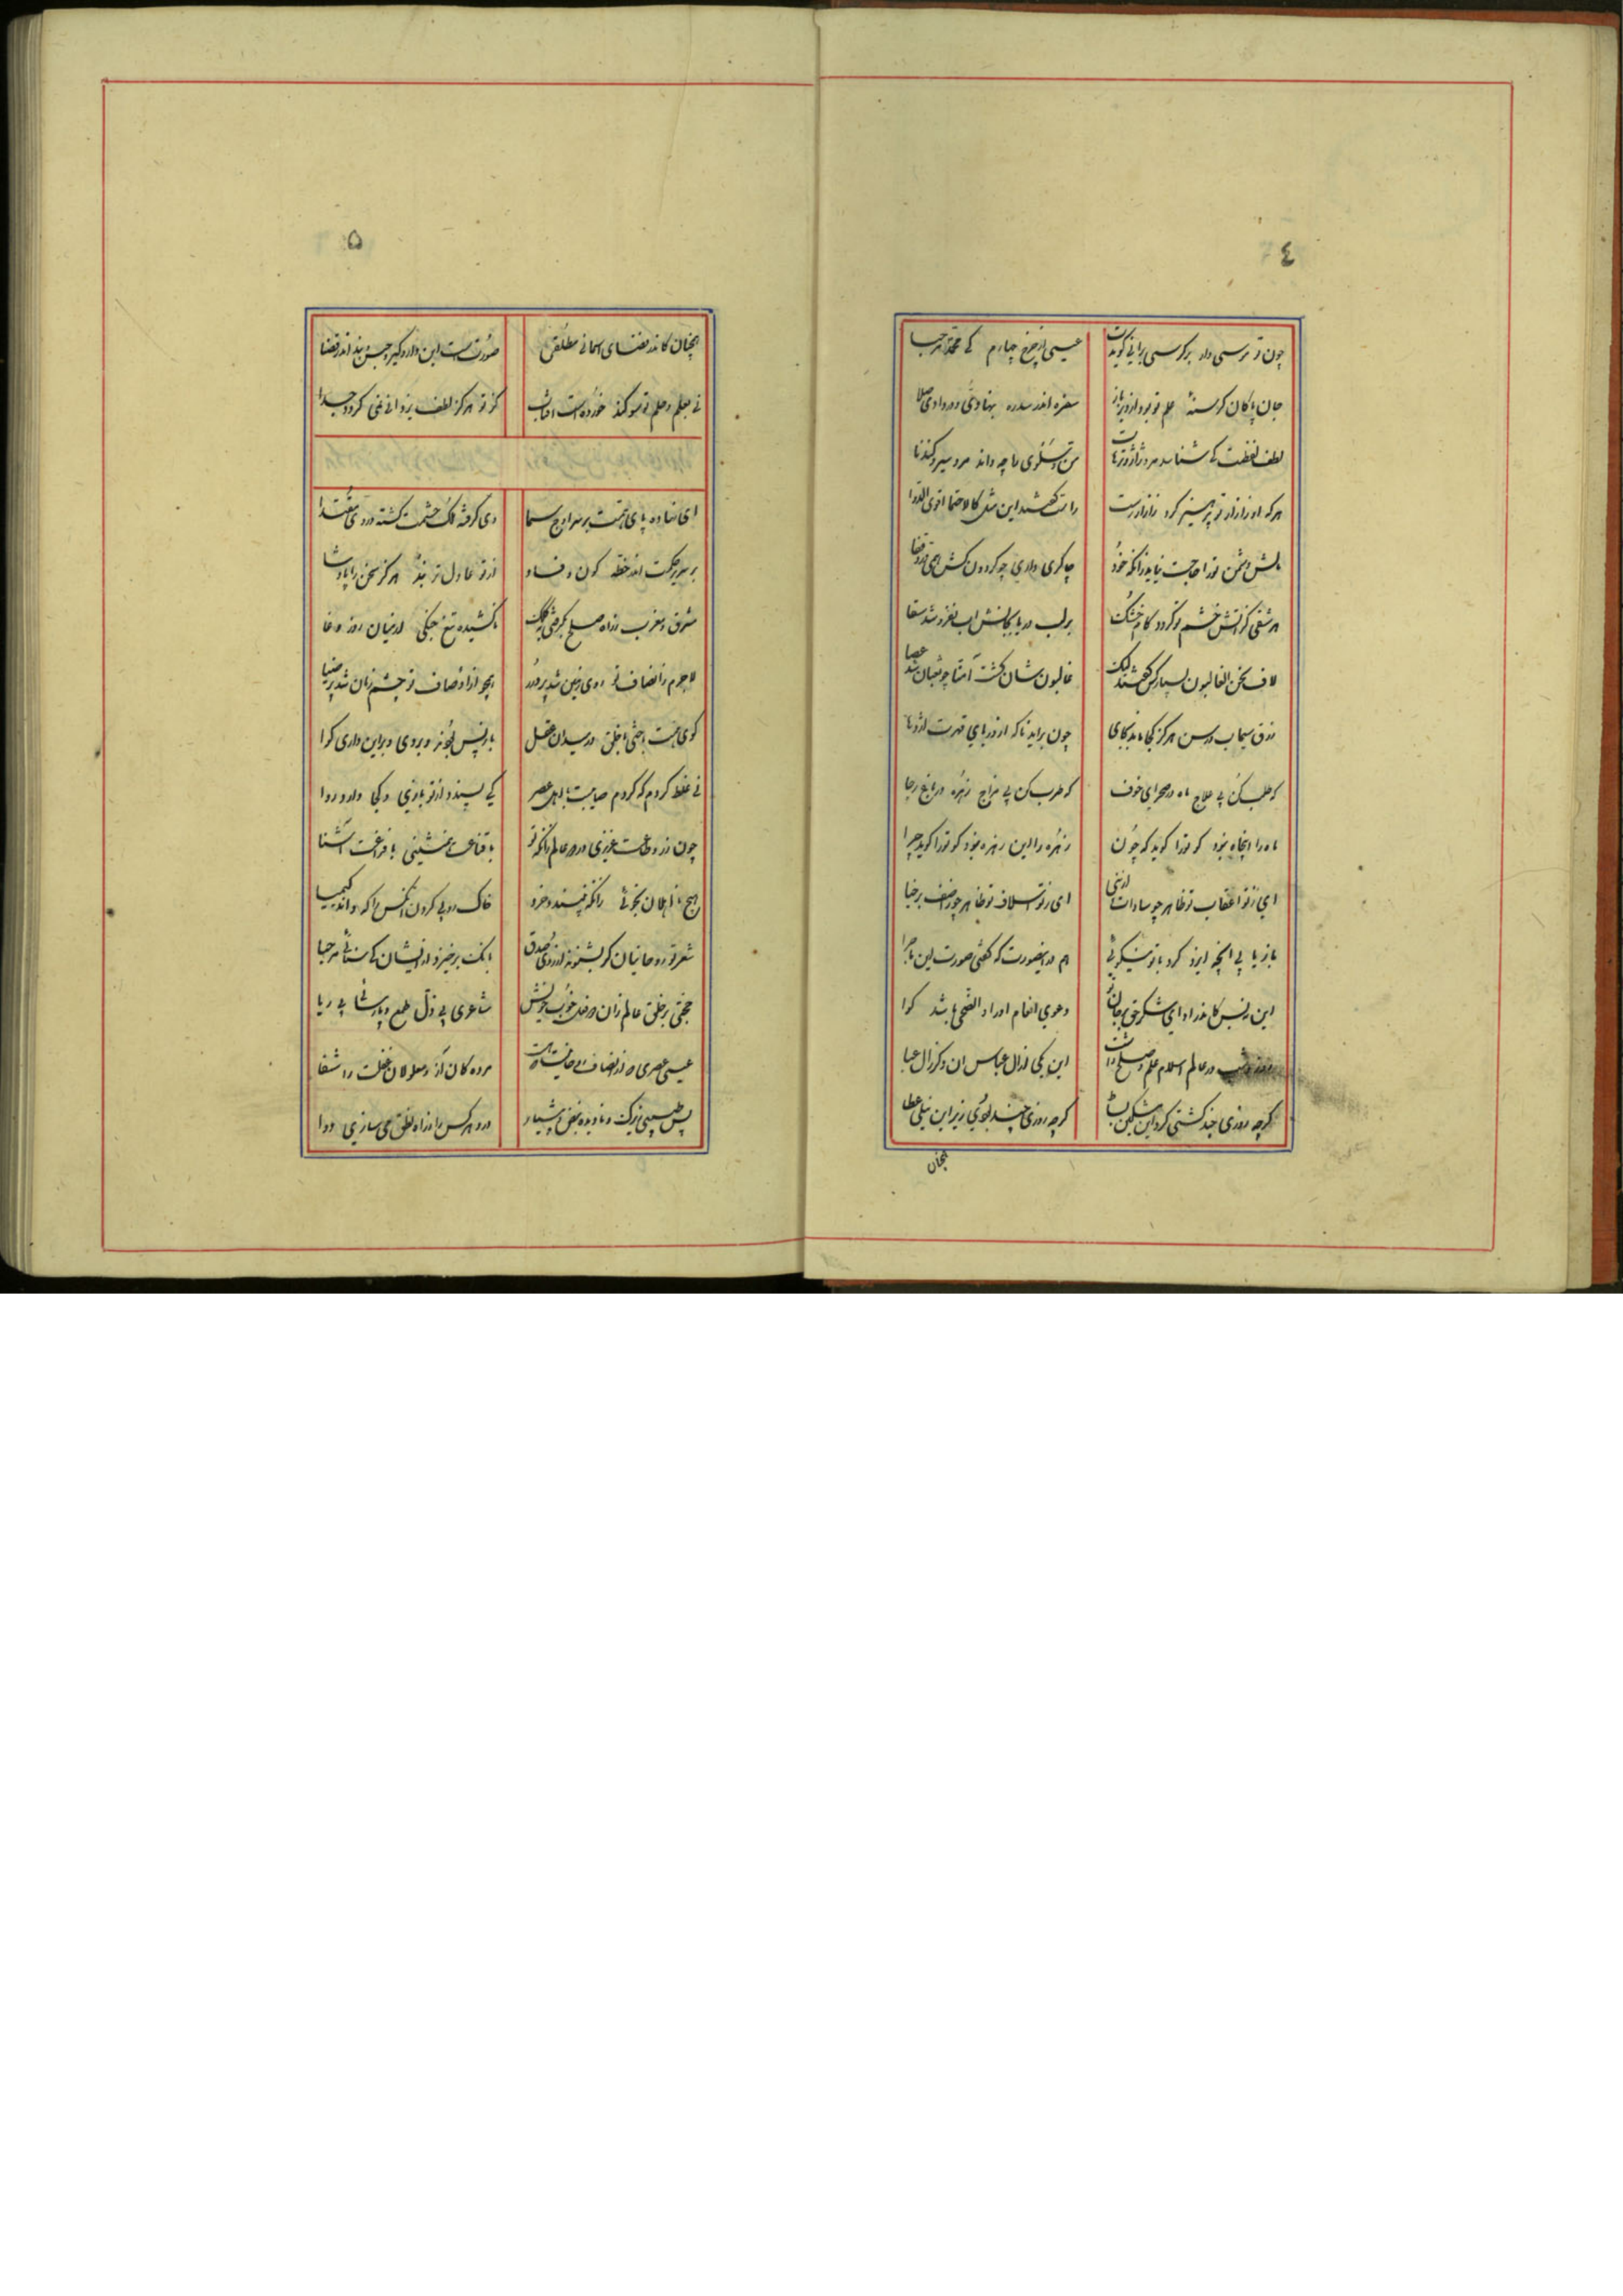 ٤
چون تو موسی وار بر کرسی برایی گویدت عیسی از چرخ چهارم کای محمد مرحبا
جان پاکان گرسنه علم تو بود از دیر باز سفره اندر سدره بنهادی و دردادی صلا
لطف لفظت کی شناسد مرد ژاژ و ترهات من و سلوی را چه داند مرد سیر و گندنا
هر که او زازار تو پرهیز کرد زازار رست راست گفتند این مثل کالاحتما اقوی الدوا
مالش دشمن تورا حاجت نیاید زانکه خود چاکری داری چو گردون کش همی درد قفا
هر شقی کز آتش خشم تو گردد کام خشک بر لب دریا بجانش آب نفروشد سقا
لاف نحن الغالبون بسیار کس گفتند لیک غالبون شان گشت آمنا چو ثعبان شد عصا
زرق سیماب و رسن هرگز کجا ماند بجای چون براید ناگه از دریای قهرت اژدها
که طلب کن بی علاج ماه در صحرای خوف که طرب کن بی مزاج زهره در باغ رجا
ماه را آنجا نبود کو تورا گوید که چون زهره را این زهره نبود کو تورا گوید چرا
ای ز تو اعقاب تو ظاهر چو سادات از نبی ای ز تو اسلاف تو ظاهر چو
باز یا بی آنچه ایزد کرد با تو نیکوئی هم در
این نفس کاندر ادای شکر حق بر جان تو دعوی انعام او راد الضحی باشد گوا
روز و شب در عالم اسلام علم و صلح داشت این یکی از آل عباس آن دگر ز آل عبا
گرچه روزی چند گشتی گرد این گرچه روزی چند بودی زیر این نیلی عطا
همچنان
۵
همچنان کاندر فضای آسمانی مطلقی صورتست این دار و گیر و حبس و بند اندر قضا
نی بعلم و حلم تو سوگند خوردست آفتاب کز تو هرگز لطف یزدانی نمی گردد جدا
ای نهاده پای همت بر سر اوج سما وی گرفته ملک حشمت گشته در وی مقتدا
بر سریر حکمت اندر خطه کون و فساد از تو عادل تر نبد هرگز سخن را پادشا
مشرق و مغرب ز راه صلح بگرفتی بکلک ناکشیده تیغ جنگی در میان روز وغا
لاجرم ز انصاف تو روی زمین شد پر ز در همچو از اوصاف تو چشم زمان شد پر ضیا
گوی همت باختی با خلق در میدان عقل باز پس نبود و بردی و بر این داری گوا
نی غلط کردم که گردم صاحبت با اهل عصر کی پسندد از تو بازی و کی دارد روا
چون ز روی طاعت عزیزی در همه عالم زانکه تو با قناعت همنشینی با فراغت آشنا
هیچ نااهلان نجوئی زانکه نپسندد خرد خاک روبی کردن آنکس را که داند کیمیا
شعر تو روحانیان گر بشنوند از روی صدق بانگ برخیزد از ایشان کای سنائی مرحبا
حجتی بر خلق عالم زان دو فعل خوب خویش شاعری بی ذل طمع و پارسائی بی ریا
عیسی عصری مرده کان را ز و معلولان غفلت را شفا
پس طبیبی زیرک و نادیده نبض و پیشیار درد هر کس را ز راه نطق می سازی دوا